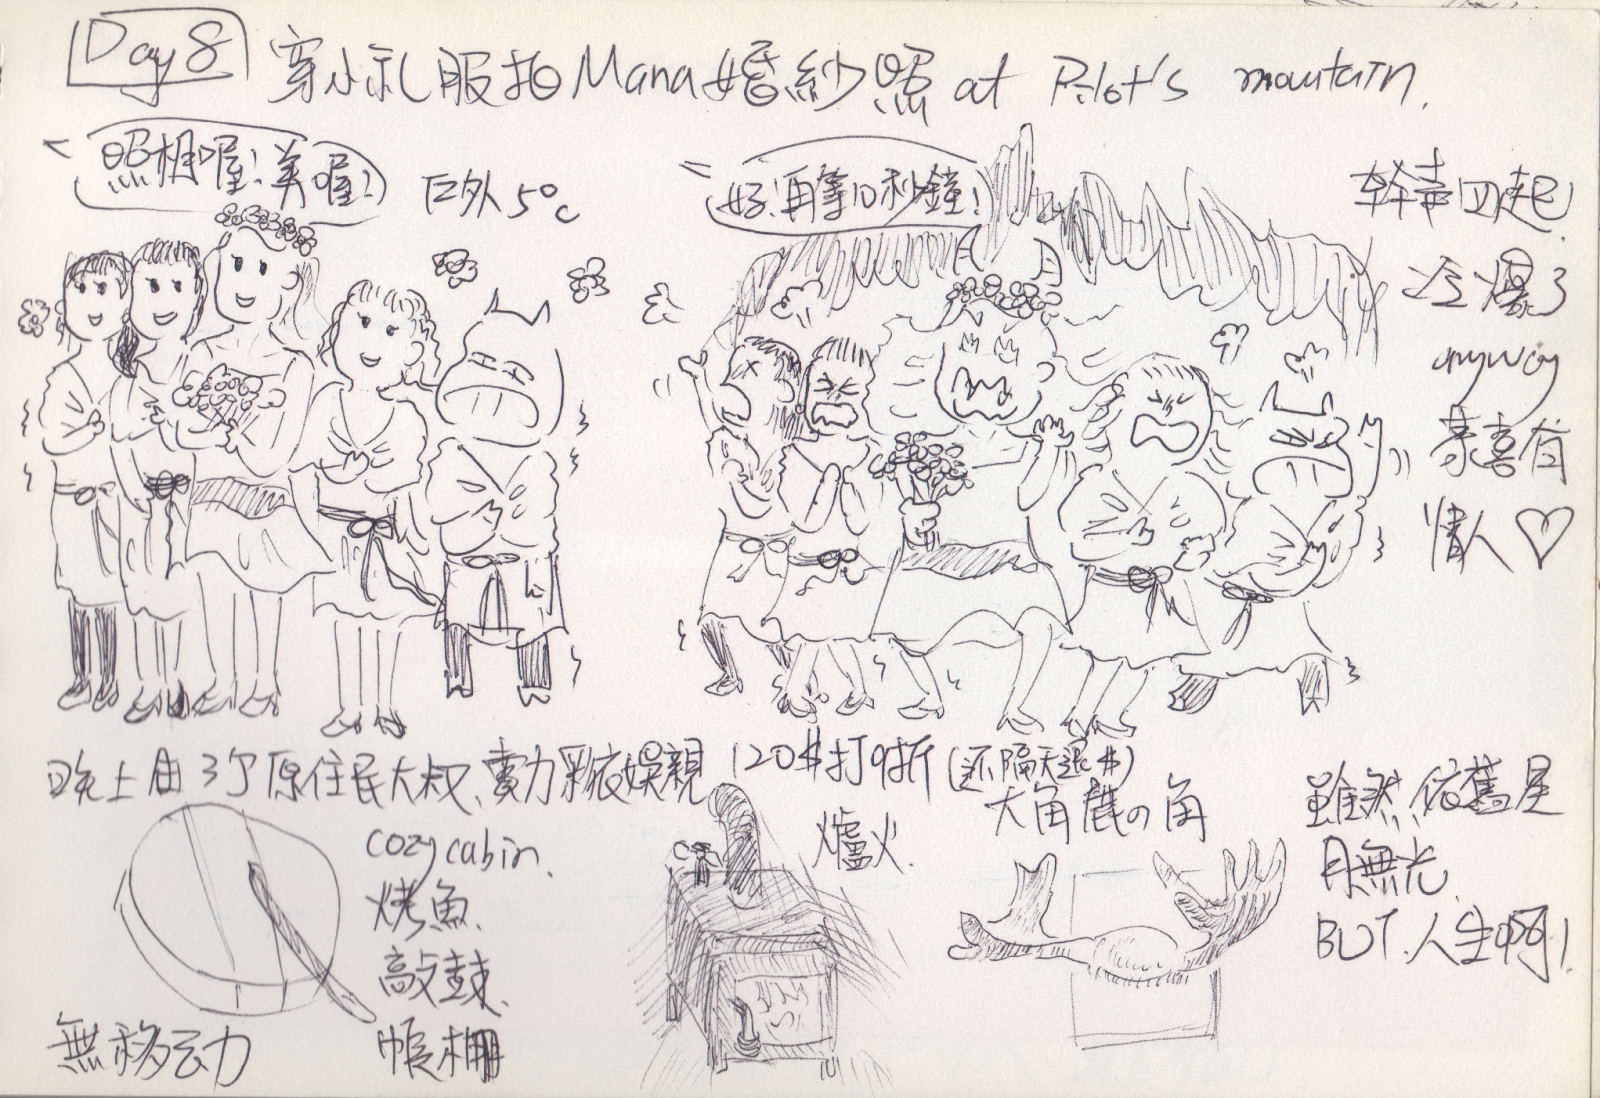 Day 8 穿小礼服拍Mana婚紗照 at Pilot's mountain.
照相喔!美喔!
戶外5°C
好!再等10秒鐘!
幹聲四起!
冷爆了
anyway
恭喜有
情人♡
晚上由3个原住民大叔、賣力彩衣娛親
120$打9折(还隔天退$)
cozy cabin.
烤魚.
敲鼓.
帳棚
無移动力
爐火.
大角鹿の角
雖然,依舊星
月無光.
BUT.人生啊!